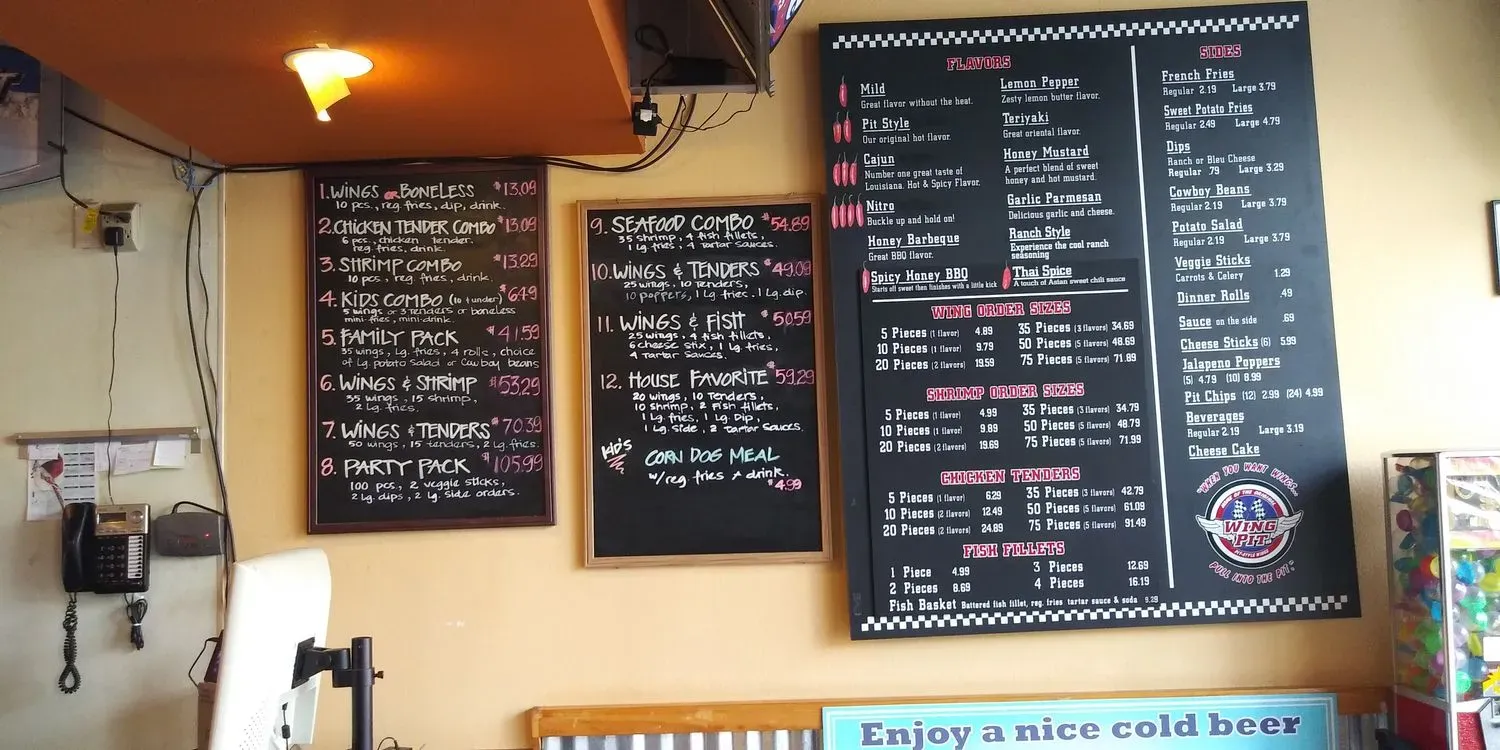 1. WINGS OR BONELESS $13.09
10 pcs., reg. fries, dip, drink.
2. CHICKEN TENDER COMBO $13.09
6 pcs., chicken tender.
reg. fries, drink.
3. SHRIMP COMBO $13.29
10 pcs., reg. fries, drink.
4. KIDS COMBO (10 & under) $6.49
5 wings or 3 tenders or boneless
mini-fries, mini-drink.
5. FAMILY PACK $41.59
35 wings, Lg. fries, 4 rolls, choice
of Lg. potato Salad or Cowboy beans
6. WINGS & SHRIMP $53.29
35 wings, 15 shrimp,
2 Lg. fries.
7. WINGS & TENDERS $70.39
50 wings, 15 tenders, 2 Lg. fries.
8. PARTY PACK $105.99
100 pcs, 2 veggie sticks,
2 Lg. dips, 2 Lg. side orders.
9. SEAFOOD COMBO $54.89
35 shrimp, 4 fish fillets,
1 Lg. fries, 4 Tartar Sauces.
10. WINGS & TENDERS $49.09
25 wings, 10 Tenders,
10 poppers, 1 Lg. fries. 1 Lg. dip.
11. WINGS & FISH $50.59
25 wings, 4 fish fillets,
6 cheese stix, 1 Lg. fries,
4 Tartar Sauces.
12. HOUSE FAVORITE $59.29
20 wings, 10 Tenders,
10 Shrimp, 2 Fish fillets,
1 Lg. fries, 1 Lg. Dip,
1 Lg. side, 2 Tartar Sauces.
KID'S
CORN DOG MEAL
w/reg. fries & drink.
$4.99
FLAVORS
Mild
Great flavor without the heat.
Pit Style
Our original hot flavor.
Cajun
Number one great taste of
Louisiana. Hot & Spicy Flavor.
Nitro
Buckle up and hold on!
Honey Barbeque
Great BBQ flavor.
Spicy Honey BBQ
Starts off sweet then finishes with a little kick
Lemon Pepper
Zesty lemon butter flavor.
Teriyaki
Great oriental flavor.
Honey Mustard
A perfect blend of sweet
honey and hot mustard.
Garlic Parmesan
Delicious garlic and cheese.
Ranch Style
Experience the cool ranch
seasoning
Thai Spice
A touch of Asian sweet chili sauce
WING ORDER SIZES
5 Pieces (1 flavor) 4.89 35 Pieces (3 flavors) 34.69
10 Pieces (1 flavor) 9.79 50 Pieces (5 flavors) 48.69
20 Pieces (2 flavors) 19.59 75 Pieces (5 flavors) 71.89
SHRIMP ORDER SIZES
5 Pieces (1 flavor) 4.99 35 Pieces (3 flavors) 34.79
10 Pieces (1 flavor) 9.89 50 Pieces (5 flavors) 48.79
20 Pieces (2 flavors) 19.69 75 Pieces (5 flavors) 71.99
CHICKEN TENDERS
5 Pieces (1 flavor) 6.29 35 Pieces (3 flavors) 42.79
10 Pieces (2 flavors) 12.49 50 Pieces (5 flavors) 61.09
20 Pieces (2 flavors) 24.89 75 Pieces (5 flavors) 91.49
FISH FILLETS
1 Piece 4.99 3 Pieces 12.69
2 Pieces 8.69 4 Pieces 16.19
Fish Basket Battered fish fillet, reg. fries tartar sauce & soda 9.29
SIDES
French Fries
Regular 2.19 Large 3.79
Sweet Potato Fries
Regular 2.49 Large 4.79
Dips
Ranch or Bleu Cheese
Regular .79 Large 3.29
Cowboy Beans
Regular 2.19 Large 3.79
Potato Salad
Regular 2.19 Large 3.79
Veggie Sticks
Carrots & Celery 1.29
Dinner Rolls .49
Sauce on the side .69
Cheese Sticks (6) 5.99
Jalapeno Poppers
(5) 4.79 (10) 8.99
Pit Chips (12) 2.99 (24) 4.99
Beverages
Regular 2.19 Large 3.19
Cheese Cake
"WHEN YOU WANT WINGS...
HOME OF THE ORIGINAL
WING
PIT
PIT-STYLE WINGS
PULL INTO THE PIT."
Enjoy a nice cold beer